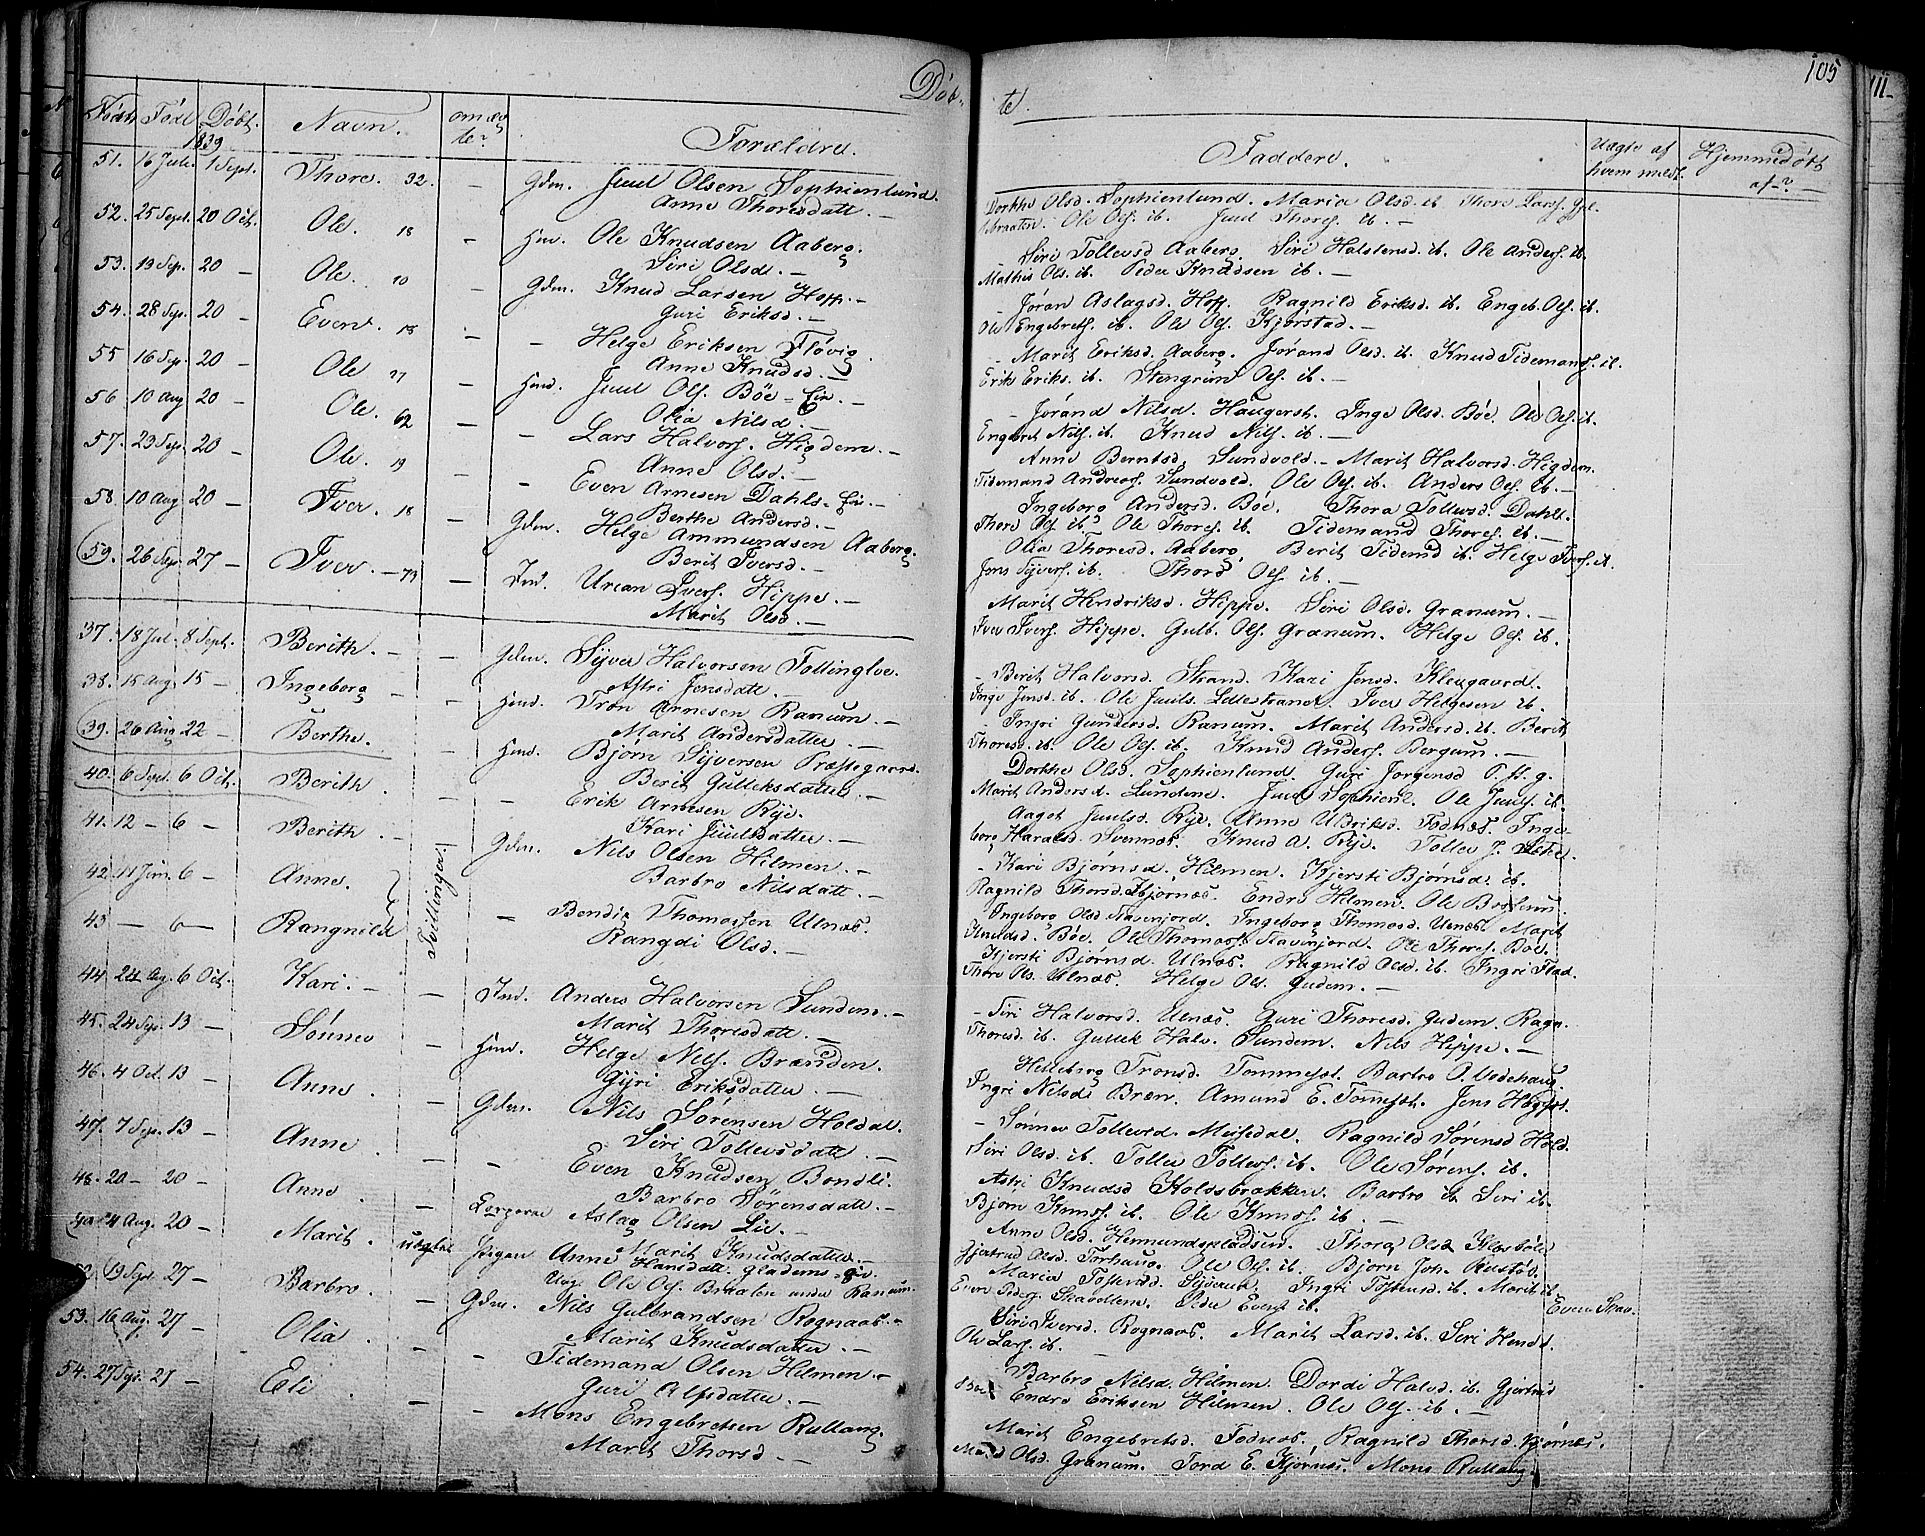 Døb-
te.
105
Födt. Födl Dobt. Navn. Forældre.
1839
Faddere. Uægte af hvem meldt. Hjemmedøbt af-?-
51. 16 Juli. 1 Sept. Thore. 32. - Gdm. Juul Olsen Sophienlund.
Anne Thoresdatt. -
52. 25 Sept. 20 Oct. Ole. 18 - Hm. Ole Knudsen Aaberg.
Siri Olsd. -
53. 19 Sep. 20 - Ole. 10 - Gdm. Knud Larsen Hoff. -
Guri Eriksd. -
54. 28 Sep. 20 - Even. 18 - - Helge Eriksen Fløvig.
Anne Knudsd. -
55 16 Sep. 20 - Ole 27 - Hmd. Juul Ols. Böe - Eie. -
Olia Nilsd. -
56 10 Aug 20 - Ole. 62 - - Lars Halvors. Higdem. -
Anne Olsd. -
57. 23 Sep. 20 - Ole. 19 - - Even Arnesen Dahls- Eie. -
Berthe Andersd. -
58. 10 Aug 20 - Iver. 18 - Gdm. Helge Ammundsen Aaberg.
Berit Iversd. -
59. 26 Sep. 27 - Iver. - 73 - Ind. Urian Ivers. Hippe. -
Marit Olsd. -
37. 18 Jul. 8 Sept. Berith. - - Gdm. Syver Halvorsen Follingloe.
Astri Jensdatt. -
38. 15 Aug 15 - Ingeborg - - Hmd. Tron Arnesen Ranum. -
Marit Andersdatter. -
39. 26 Aug 22 - Berthe. - Hmd. Bjørn Syversen Præstegaard.
Berit Gulleksdatter. -
40. 6 Sept. 6 Oct. Berith. - - Erik Arnesen Rye.
Kari Juulsdatter. -
41. 12 - 6 - Berith. - - Gdm. Nils Olsen Hilmen. -
Barbro Nilsdatt. -
42. 11 Jun. 6 - Anne. Tvillinger. - Bendix Thomassen Ulnæs.
43 - 6 - Rangnild Rangdi Olsd. -
44. 24 Aug. 6 Oct. Kari. - - Ind. Anders Halvorsen Sundem. -
Marit Thoresdatt. -
45. 24 Sep. 13 - Sønnev - Hmd. Helge Nils. Brænden.
Gyri Eriksdatter. -
46. 4 Oct. 13 - Anne. - Gdm. Nils Sørensen Holdal.
Siri Tollevsdatt. -
47. 7 Sep. 13 - Anne. - - Even Knudsen Bondli.
Barbro Sørensdatt. -
48. 20 - 20 - Anne. - Corporal Aslag Olsen Lie. -
Marit Knudsdatter. -
4 Aug. 20 - Marit. uægte Anne Hansdatt. Gladems- Eie.
Ole Ols. under Ranum.
19 Sept. 27 - Barbro. - Gdm. Nils Gulbrandsen Rognaas. -
Marit Knudsdatter. -
53. 16 Aug. 27 - Olia. - - Tidemand Olsen Hilmen. -
Guri Olsdatter. -
54. 27 Sep. 27 - Eli. - - Mons Engebretsen Rullang
Marit Thorsd -
Dorthe Olsd. Sophienlund. Maria Olsd. ib. Thore Lars. Gpl.
Braaten. Ole Ols. ib. Juul Thores. ib. -
Siri Tollevsd Aaberg. Siri Halstensd. ib. Ole Anders. ib.
Mathis Ols. ib. Peder Knudsen ib. -
Jøran Aslagsd. Hoff. Ragnild Eriksd. ib. Engeb. Ols. ib.
Ole Engebrets. ib. Ole Ols. Kjørstad. -
Marit Eriksd. Aaberg. Jørand Olsd. ib. Knud Tidemands. ib.
Erik Eriks. ib. Stengrim Ols. ib. -
Jørand Nilsd. Haugerst. Inge Olsd. Böe. Ole Ols. ib.
Engebret Nils. ib. Knud Nils. ib. -
Anne Berntsd. Sundvold. - Marit Halvorsd. Higdem.
Tidemand Andreas. Sundvold. Ole Ols. ib. Anders Ols. ib. -
Ingeborg Andersd. Böe. Thora Tollevsd. Dahls.
Thore Ols. ib. Ole Thores. ib. Tidemand Thores. ib. -
Olia Thoresd. Aaberg. Berit Tidemd ib. Helge Ivers. ib.
Jens Syvers. ib. Thord Ols. ib. -
Marit Hendriksd. Hippe. Siri Olsd. Granum. -
Iver Ivers. Hippe. Gulb. Ols. Granum. Helge Ols. ib.
- Berit Halvorsd. Strand. Kari Jensd. Klevgaard.
Inge Jensd. ib. Ole Juuls. Lillestrand. Iver Helgesen ib.
- Ingri Gundersd. Ranum. Marit Andersd. ib. Berit
Thoresd. ib. Ole Ols. ib. Knud Anders. Bergum. -
Dorthe Olsd. Sophienlund. Guri Jorgensd P. st. g.
Marit Andersd. Lundene. Juul Sophienl. Ole Juuls. ib.
Aagot Juulsd. Rye. Anne Ulriksd. Fodnæs. Inge-
borg Haralsd. Svennæs. Knud A. Rye. Tollev J. Sæte.
- Kari Bjørnsd. Hilmen. Kjersti Bjørnsd. ib.
Ragnild Thorsd. Kjørnæs. Endre Hilmen. Ole
Ingeborg Olsd. Stavenjord. Ingeborg Thomasd. Ulnæs. Marit
Knudsd. Böe. Ole Thomas. Stavenjord. Ole Thores. Böe.
Kjersti Bjørnsd Ulnæs. Ragnild Olsd. ib. Ingri Flad.
Thore Ols. Ulnæs. Helge Ols. Gudem. -
- Siri Halvorsd. Ulnæs. Guri Thoresd. Gudem. Ragn.
Thoresd. ib. Gullek Halv. Sundem. Nils Hippe. -
Helleborg Tronsd. Tommest. Barbro O. Vedehaug.
Ingri Nilsd. Bræn. Amund E. Tomest. Jens
- Sønnev Tollevsd. Meisedal. Ragnild Sørensd Hold.
Siri Olsd. ib. Tollev Tollevs. ib. Ole Sørens. ib.
Astri Knudsd Holdsbrækken. Barbro ib Siri ib.
Bjørn Knuds. ib. Ole Knuds. ib. -
Anne Olsd. Hermundspladsen. Thora Olsd
Gjertrud Olsd. Torhaug. Ole Ols. ib. Bjørn Joh. Rustøe.
Maria Tostensd. Ingri Tostensd. ib. Marit ib
Even Peders. Skavellene. Peder Evens. ib. Even Skav.
Siri Iversd. Rognaas. Marit Larsd. ib. Siri Hendr.
Ole Lars. ib. -
Barbro Nilsd. Hilmen. Dordi Halvd. ib. Gjertrud
Endre Eriksen Hilmen. Ole Ols. ib. -
Marit Engebretsd. Fodnæs. Ragnild Thorsd. Kjørnes.
Olsd. Granum. Tord E. Kjørnæs. Mons Rullang.